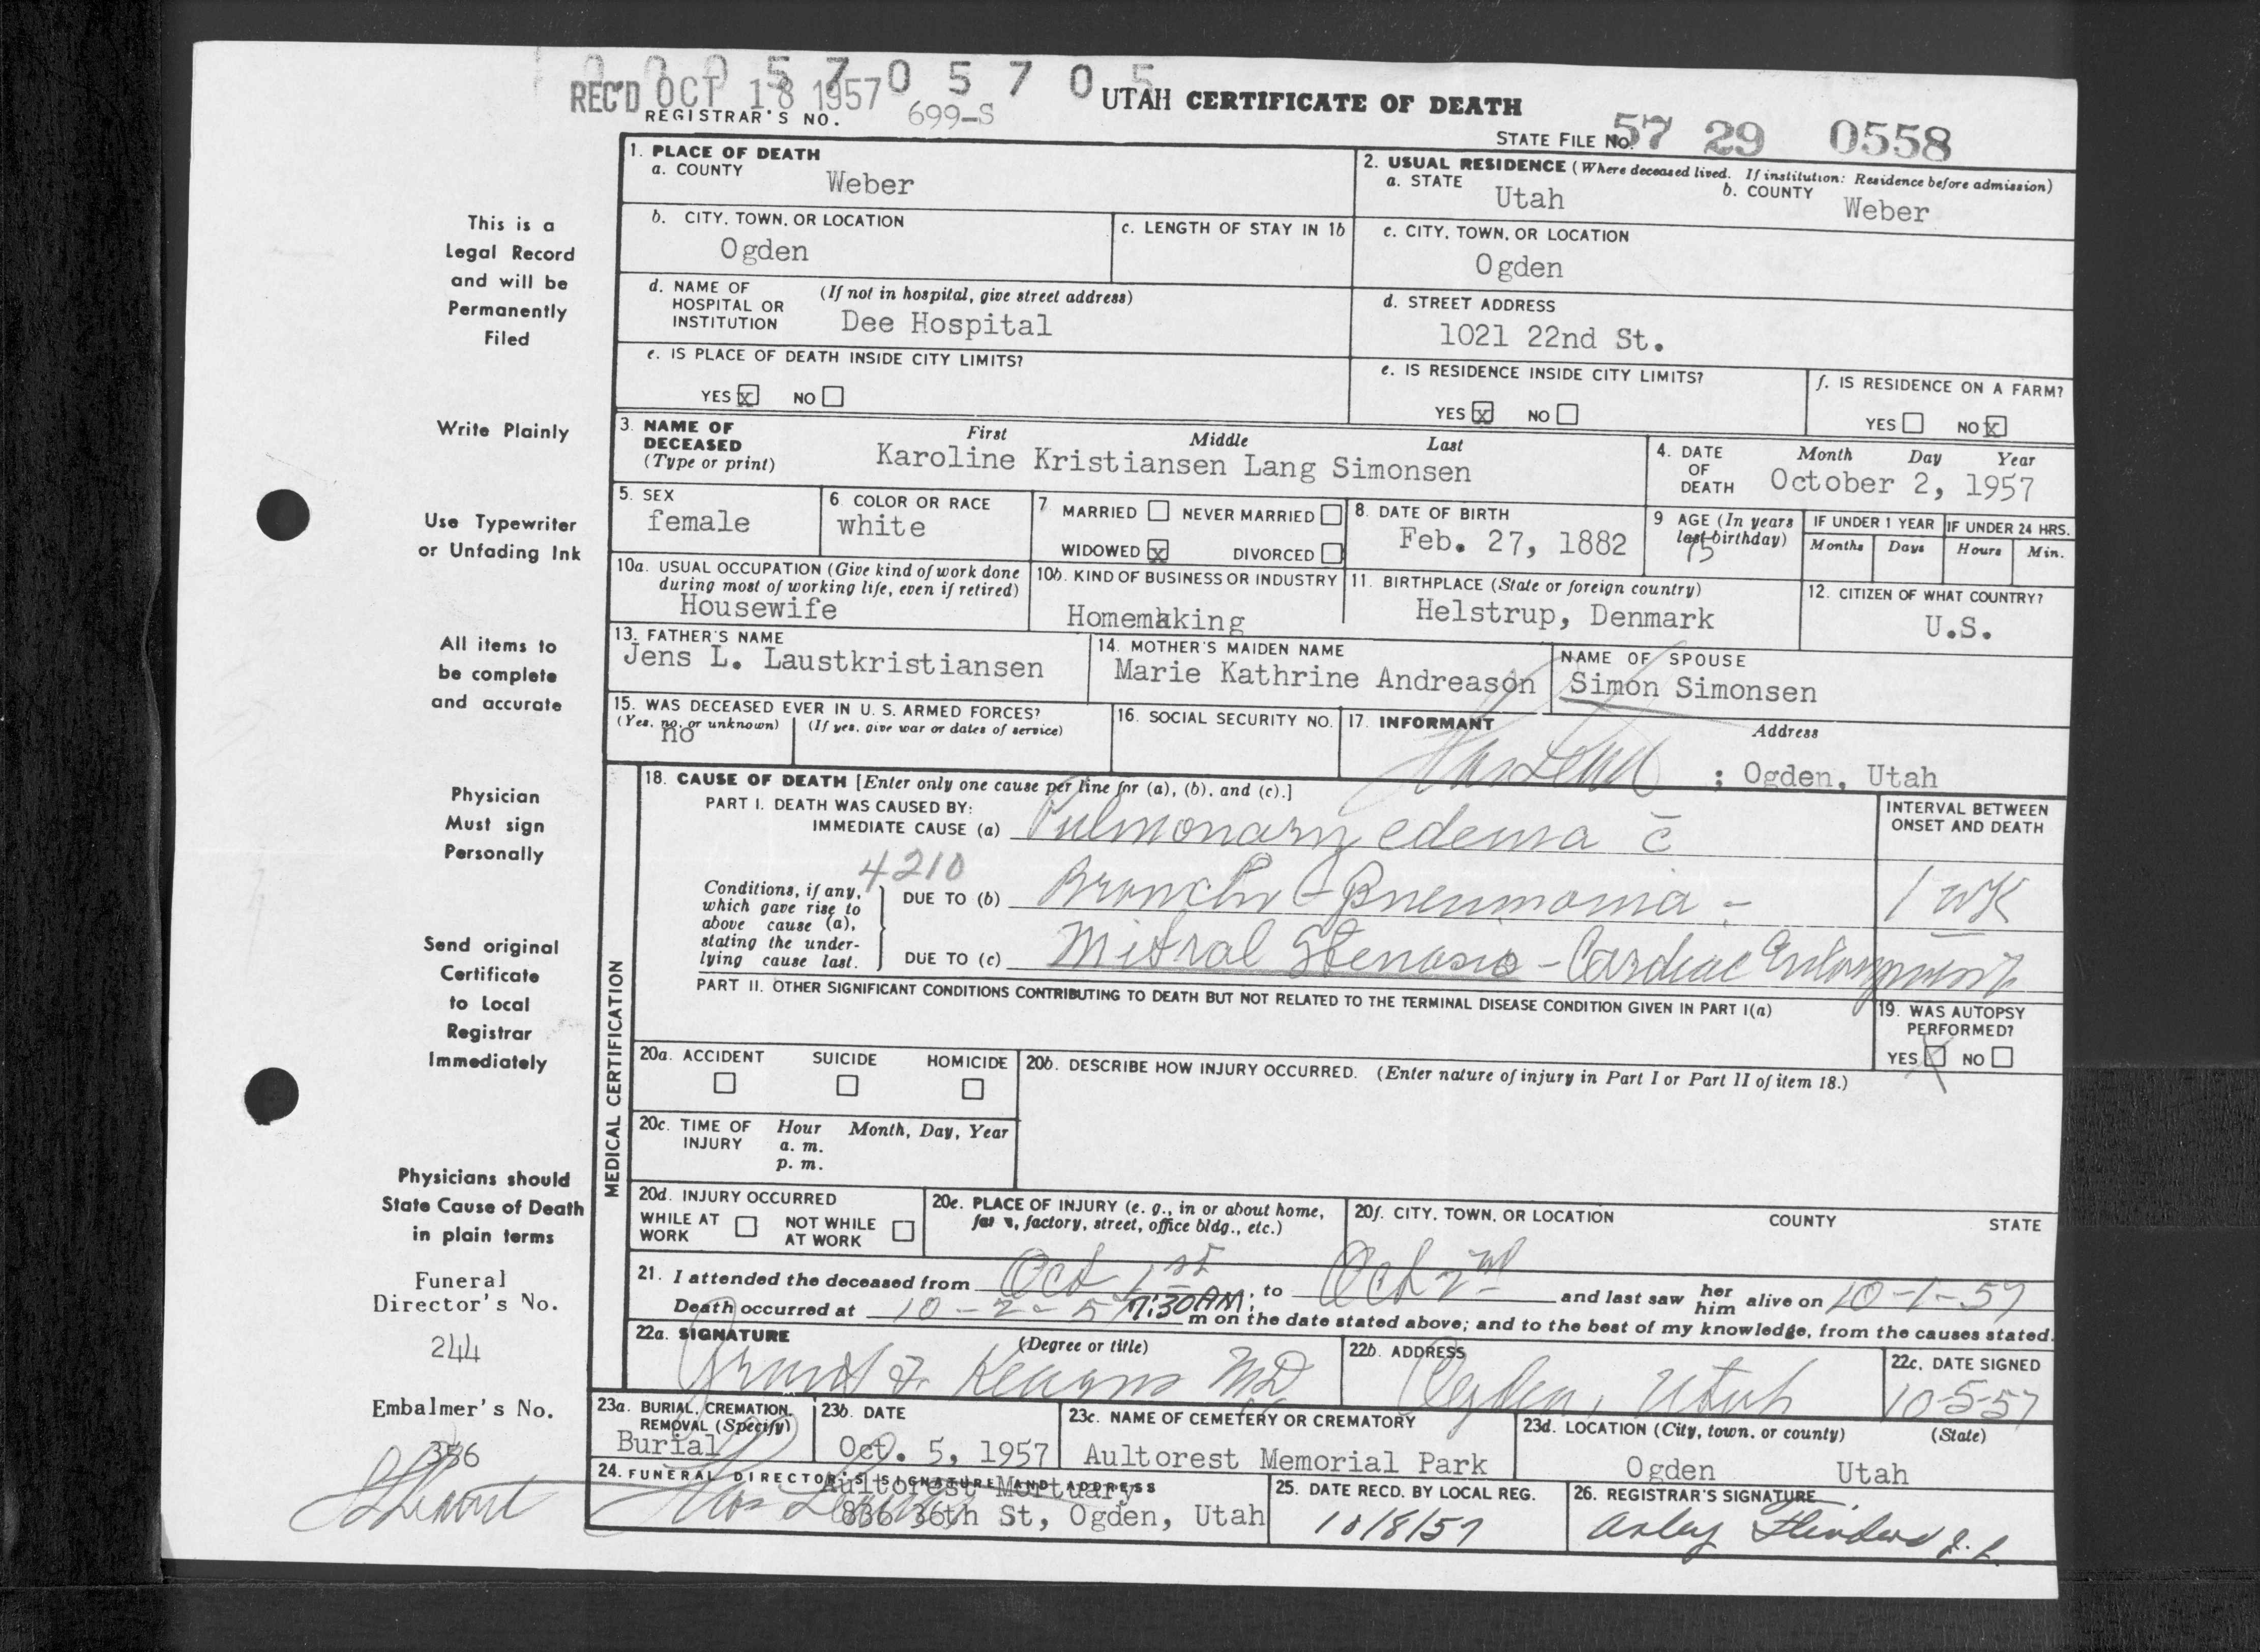 0 0 0 5 7 0 5 7 0 5
REC'D OCT 18 1957
UTAH CERTIFICATE OF DEATH
REGISTRAR'S NO. 699-S
STATE FILE NO. 57 29 0558
This is a
Legal Record
and will be
Permanently
Filed
Write Plainly
Use Typewriter
or Unfading Ink
All items to
be complete
and accurate
Physician
Must sign
Personally
Send original
Certificate
to Local
Registrar
Immediately
Physicians should
State Cause of Death
in plain terms
Funeral
Director's No.
244
Embalmer's No.
356
1. PLACE OF DEATH
a. COUNTY
Weber
2. USUAL RESIDENCE (Where deceased lived. If institution: Residence before admission)
a. STATE
Utah
b. COUNTY
Weber
b. CITY, TOWN, OR LOCATION
Ogden
c. LENGTH OF STAY IN 1b
c. CITY, TOWN, OR LOCATION
Ogden
d. NAME OF HOSPITAL OR INSTITUTION
(If not in hospital, give street address)
Dee Hospital
d. STREET ADDRESS
1021 22nd St.
e. IS PLACE OF DEATH INSIDE CITY LIMITS?
YES x NO
e. IS RESIDENCE INSIDE CITY LIMITS?
YES x NO
f. IS RESIDENCE ON A FARM?
YES NO x
3. NAME OF DECEASED (Type or print)
First Middle Last
Karoline Kristiansen Lang Simonsen
4. DATE OF DEATH
Month Day Year
October 2, 1957
5. SEX
female
6. COLOR OR RACE
white
7 MARRIED NEVER MARRIED
WIDOWED x DIVORCED
8. DATE OF BIRTH
Feb. 27, 1882
9 AGE (In years last birthday)
75
IF UNDER 1 YEAR
Months Days
IF UNDER 24 HRS.
Hours Min.
10a. USUAL OCCUPATION (Give kind of work done during most of working life, even if retired)
Housewife
10b. KIND OF BUSINESS OR INDUSTRY
Homemaking
11. BIRTHPLACE (State or foreign country)
Helstrup, Denmark
12. CITIZEN OF WHAT COUNTRY?
U.S.
13. FATHER'S NAME
Jens L. Laustkristiansen
14. MOTHER'S MAIDEN NAME
Marie Kathrine Andreason
NAME OF SPOUSE
Simon Simonsen
15. WAS DECEASED EVER IN U. S. ARMED FORCES?
(Yes, no, or unknown) (If yes, give war or dates of service)
no
16. SOCIAL SECURITY NO.
17. INFORMANT
Address
; Ogden, Utah
MEDICAL CERTIFICATION
18. CAUSE OF DEATH [Enter only one cause per line for (a), (b), and (c).]
PART I. DEATH WAS CAUSED BY:
IMMEDIATE CAUSE (a) Pulmonary edema c̄
INTERVAL BETWEEN ONSET AND DEATH
4210
Conditions, if any, which gave rise to above cause (a), stating the underlying cause last.
DUE TO (b) Broncho-Pneumonia -
1 wk
DUE TO (c) Mitral Stenosis - Cardiac Enlargement
PART II. OTHER SIGNIFICANT CONDITIONS CONTRIBUTING TO DEATH BUT NOT RELATED TO THE TERMINAL DISEASE CONDITION GIVEN IN PART I(a)
19. WAS AUTOPSY PERFORMED?
YES X NO
20a. ACCIDENT SUICIDE HOMICIDE
20b. DESCRIBE HOW INJURY OCCURRED. (Enter nature of injury in Part I or Part II of item 18.)
20c. TIME OF INJURY
Hour Month, Day, Year
a. m.
p. m.
20d. INJURY OCCURRED
WHILE AT WORK NOT WHILE AT WORK
20e. PLACE OF INJURY (e. g., in or about home, farm, factory, street, office bldg., etc.)
20f. CITY, TOWN, OR LOCATION COUNTY STATE
21. I attended the deceased from Oct 1st, to Oct 2nd and last saw her him alive on 10-1-57
Death occurred at 10-2-57 7:30AM m on the date stated above; and to the best of my knowledge, from the causes stated.
22a. SIGNATURE (Degree or title)
MD
22b. ADDRESS
Ogden, Utah
22c. DATE SIGNED
10-5-57
23a. BURIAL, CREMATION, REMOVAL (Specify)
Burial
23b. DATE
Oct. 5, 1957
23c. NAME OF CEMETERY OR CREMATORY
Aultorest Memorial Park
23d. LOCATION (City, town, or county) (State)
Ogden Utah
24. FUNERAL DIRECTOR'S SIGNATURE AND ADDRESS
Aultorest Mortuary
836 36th St, Ogden, Utah
25. DATE RECD. BY LOCAL REG.
10/8/57
26. REGISTRAR'S SIGNATURE